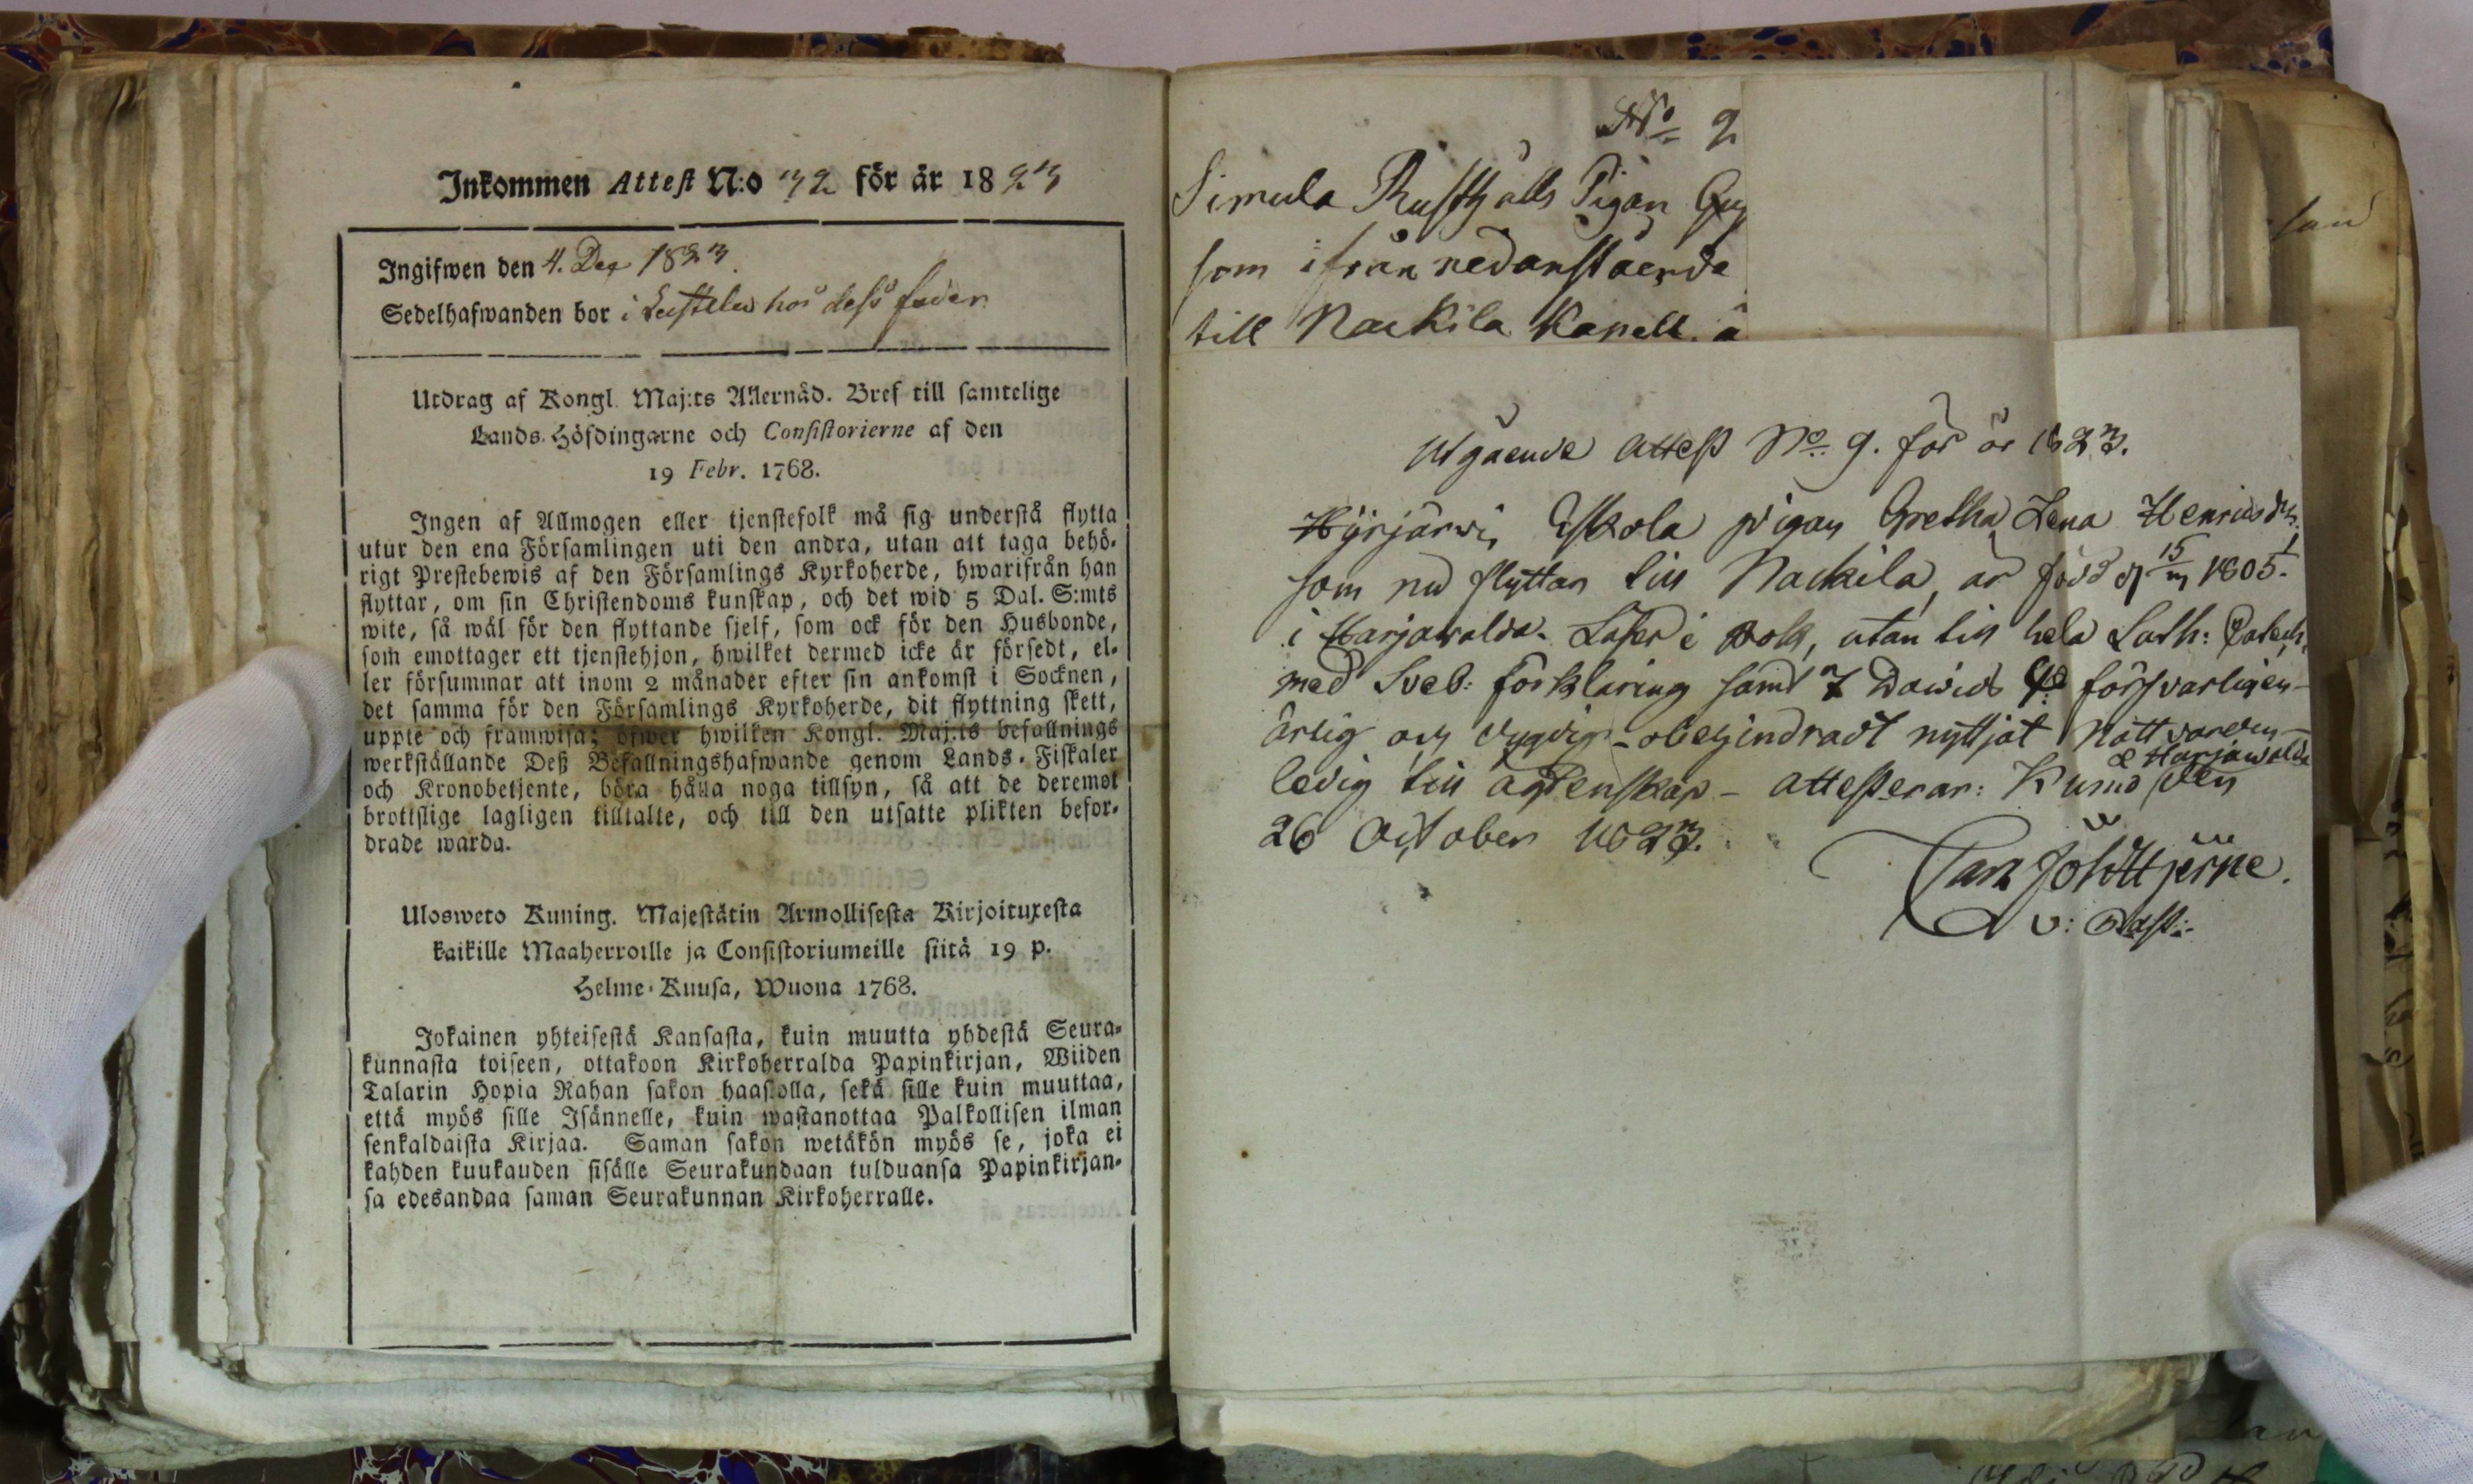 Inkommen Attest N:o 32 för år 1823
Ingifwen den 4. Dec 1823.
Sedelhafwanden bor i hos dess fader
Utdrag af Kongl. Maj:ts Allernåd. Bref till samtelige
Lands-Höfdingarne och Consistorierne af den
19 Febr. 1768.
Ingen af Allmogen eller tjenstefolk må sig understå flytta
utur den ena Församlingen uti den andra, utan att taga behö-
rigt Prestebewis af den Församlings Kyrkoherde, hwarifrån han
flyttar, om sin Christendoms kunskap, och det wid 5 Dal. S:mts
wite, så wäl för den flyttande sjelf, som ock för den Husbonde,
som emottager ett tjenstehjon, hwilket dermed icke är försedt, el-
ler försummar att inom 2 månader efter sin ankomst i Socknen,
det samma för den Församlings Kyrkoherde, dit flyttning skett,
uppte och framwisa; öfwer hwilken Kongl. Maj:ts befallnings
werkställande Deß Befallningshafwande genom Lands-Fiskaler
och Kronobetjente, böra hålla noga tillsyn, så att de deremot
brottslige lagligen tilltalte, och till den utsatte plikten befor-
drade warda.
Ulosweto Kuning. Majestätin Armollisesta Kirjoituxesta
kaikille Maaherroille ja Consistoriumeille siitä 19 p.
Helme-Kuusa, Wuona 1768.
Jokainen yhteisestä Kansasta, kuin muutta yhdestä Seura-
kunnasta toiseen, ottakoon Kirkoherralda Papinkirjan, Wiiden
Talarin Hopia Rahan sakon haastolla, sekä sille kuin muuttaa,
että myös sille Isännelle, kuin wastanottaa Palkollisen ilman
senkaldaista Kirjaa. Saman sakon wetäkön myös se, joka ei
kahden kuukauden sisälle Seurakundaan tulduansa Papinkirjan-
sa edesandaa saman Seurakunnan Kirkoherralle.
No 9
Simula Rusthålls Pigan
som ifrån nedanstående
till Nackila Kapell. å
Utgående Attest No. 9. för år 1823.
Hyrjärwi Eskola pigan Gretha Lena Henricsdr.
som nu flyttar till Nackila, är född d 15/1 1805.
i Harjawalda. Läser i Bok, utan till hela Luth: Catech.
med Sveb: förklaring samt 7 Dawids försvarligen-
ärlig och dygdig - obehindradt nyttjat Nattvarden -
ledig till ägtenskap - attesterar: Kumo & Harjawalda den
26 October 1823.
v: Past: